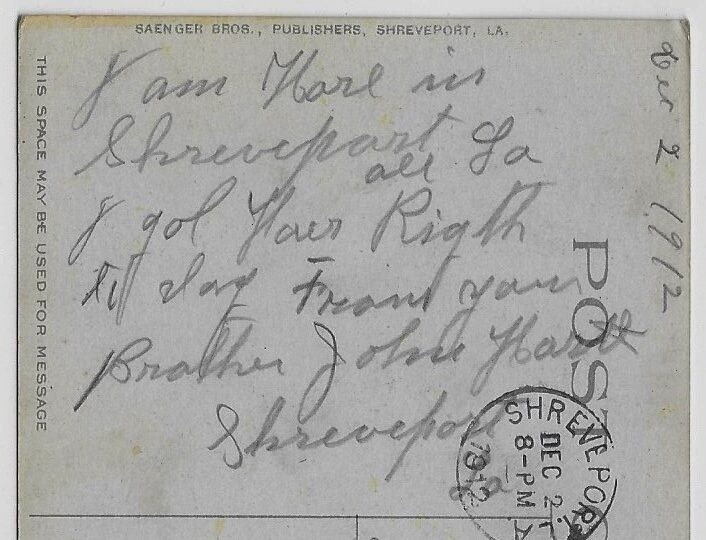 SAENGER BROS., PUBLISHERS, SHREVEPORT, LA.
THIS SPACE MAY BE USED FOR MESSAGE
Dec 2 1912
I am Hare in
Shreveport La
all
I got Haer Rigth
to day From your
Brother John Hartt
Shreveport
La
POST
SHREVEPORT
DEC 2
8-PM
1912